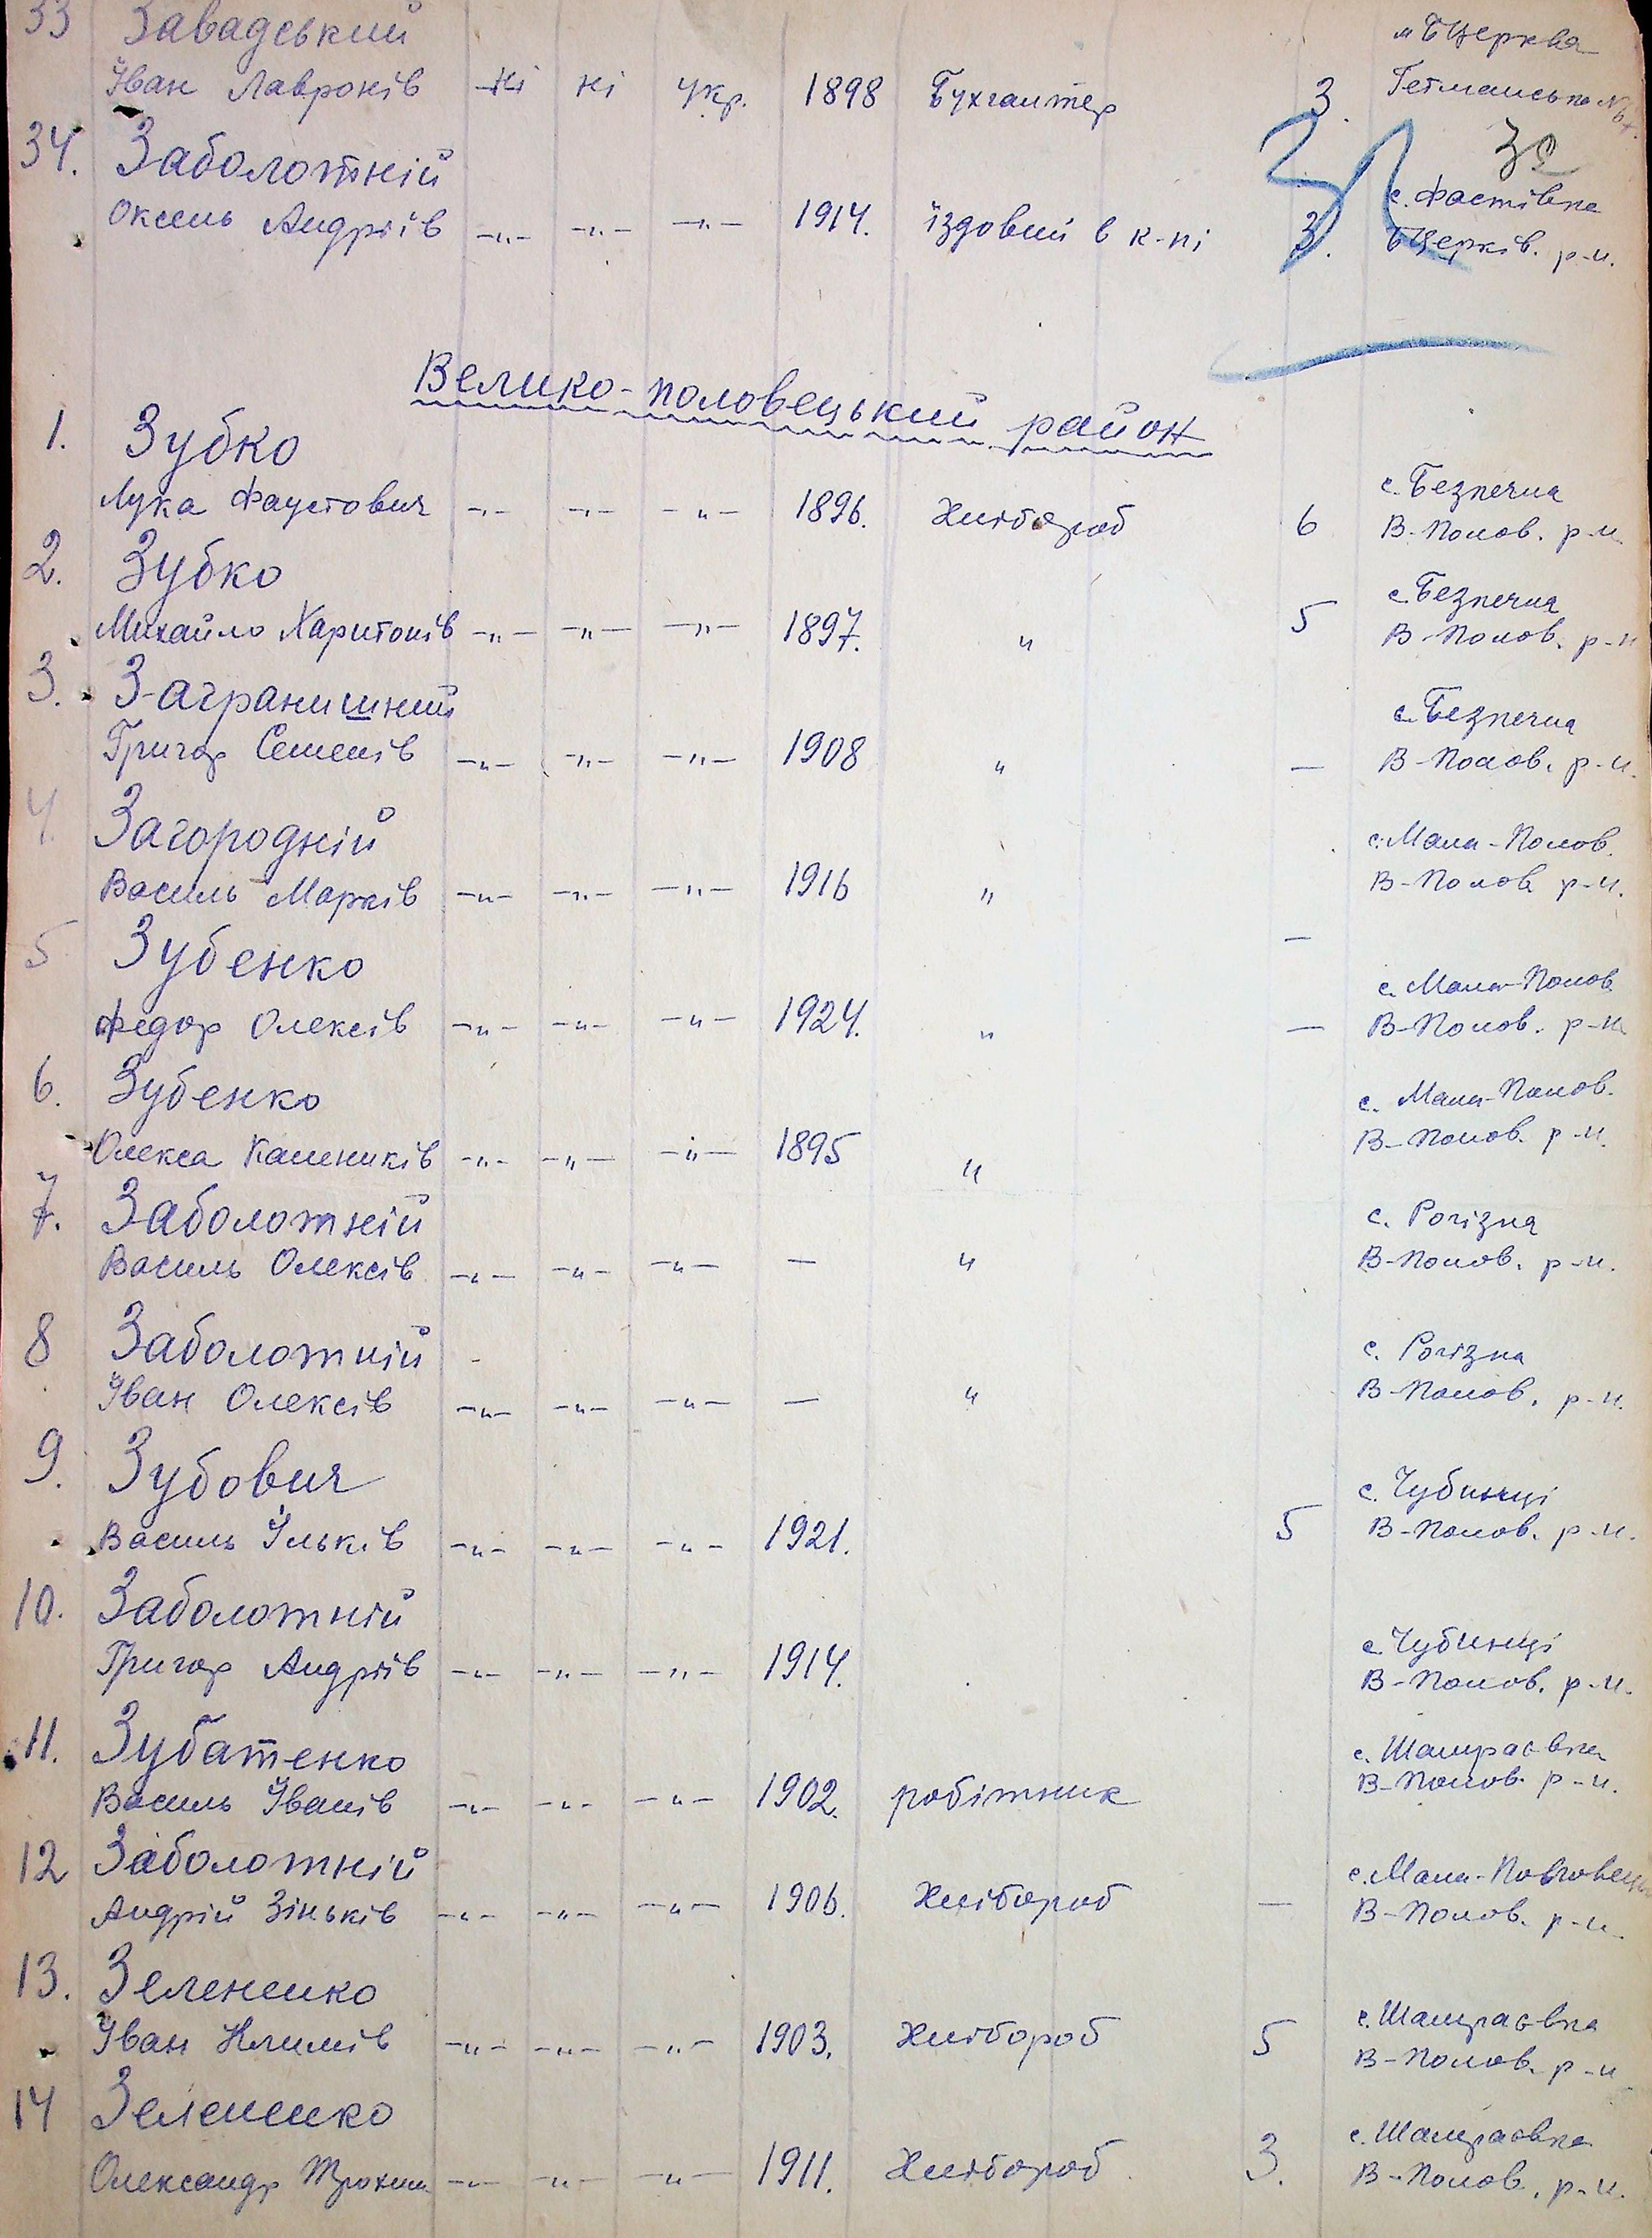 33 Завадський м. БЦерква
Іван Лавронів Ні ні укр. 1898 Бухгалтер 3 Гетманська №
34. Заболотній 32
с. Фастівка
Оксень Андріїв -„- -„- -„- 1914. їздовий в к-пі 3. БЦерків. р-н.
Велико-половецький район
1. Зубко
с. Безпечна
Лука Фаустович -„- -„- -„- 1896. Хлібороб 6 В-Полов. р-н.
2. Зубко
с. Безпечна
Михайло Харитонів -„- -„- -„- 1897. „ 5 В-Полов. р-н
3. Заграниший
с. Безпечна
Григор Семенів -„- -„- -„- 1908 „ — В-Полов. р-н.
4. Загородній
с. Мала-Полов.
Василь Марків -„- -„- -„- 1916 „ В-Полов. р-н.
5 Зубенко —
с. Мала-Полов.
Федор Олексів -„- -„- -„- 1924. „ — В-Полов. р-н
6. Зубенко с. Мала-Полов.
Олекса Калеників -„- -„- -„- 1895 „ В-Полов. р-н.
7. Заболотній с. Рогізна
Василь Олексів -„- -„- -„- — „ В-Полов. р-н.
8 Заболотній с. Рогізна
Іван Олексів -„- -„- -„- — „ В-Полов. р-н.
9. Зубович с. Чубинці
Василь Ільків -„- -„- -„- 1921. 5 В-Полов. р-н.
10. Заболотній с. Чубинці
Григор Андріїв -„- -„- -„- 1914. В-Полов. р-н.
11. Зубатенко с. Шамраєвка
Василь Іванів -„- -„- -„- 1902. робітник В-Полов. р-н.
12 Заболотній с. Мала-Половецьк
Андрій Зіньків -„- -„- -„- 1906. Хлібороб — В-Полов. р-н.
13. Зелененко с. Шамраєвка
Іван Климів -„- -„- -„- 1903. Хлібороб 5 В-Полов. р-н
14 Зелененко с. Шамраєвка
Олександр Трохим -„- -„- -„- 1911. Хлібороб 3. В-Полов. р-н.